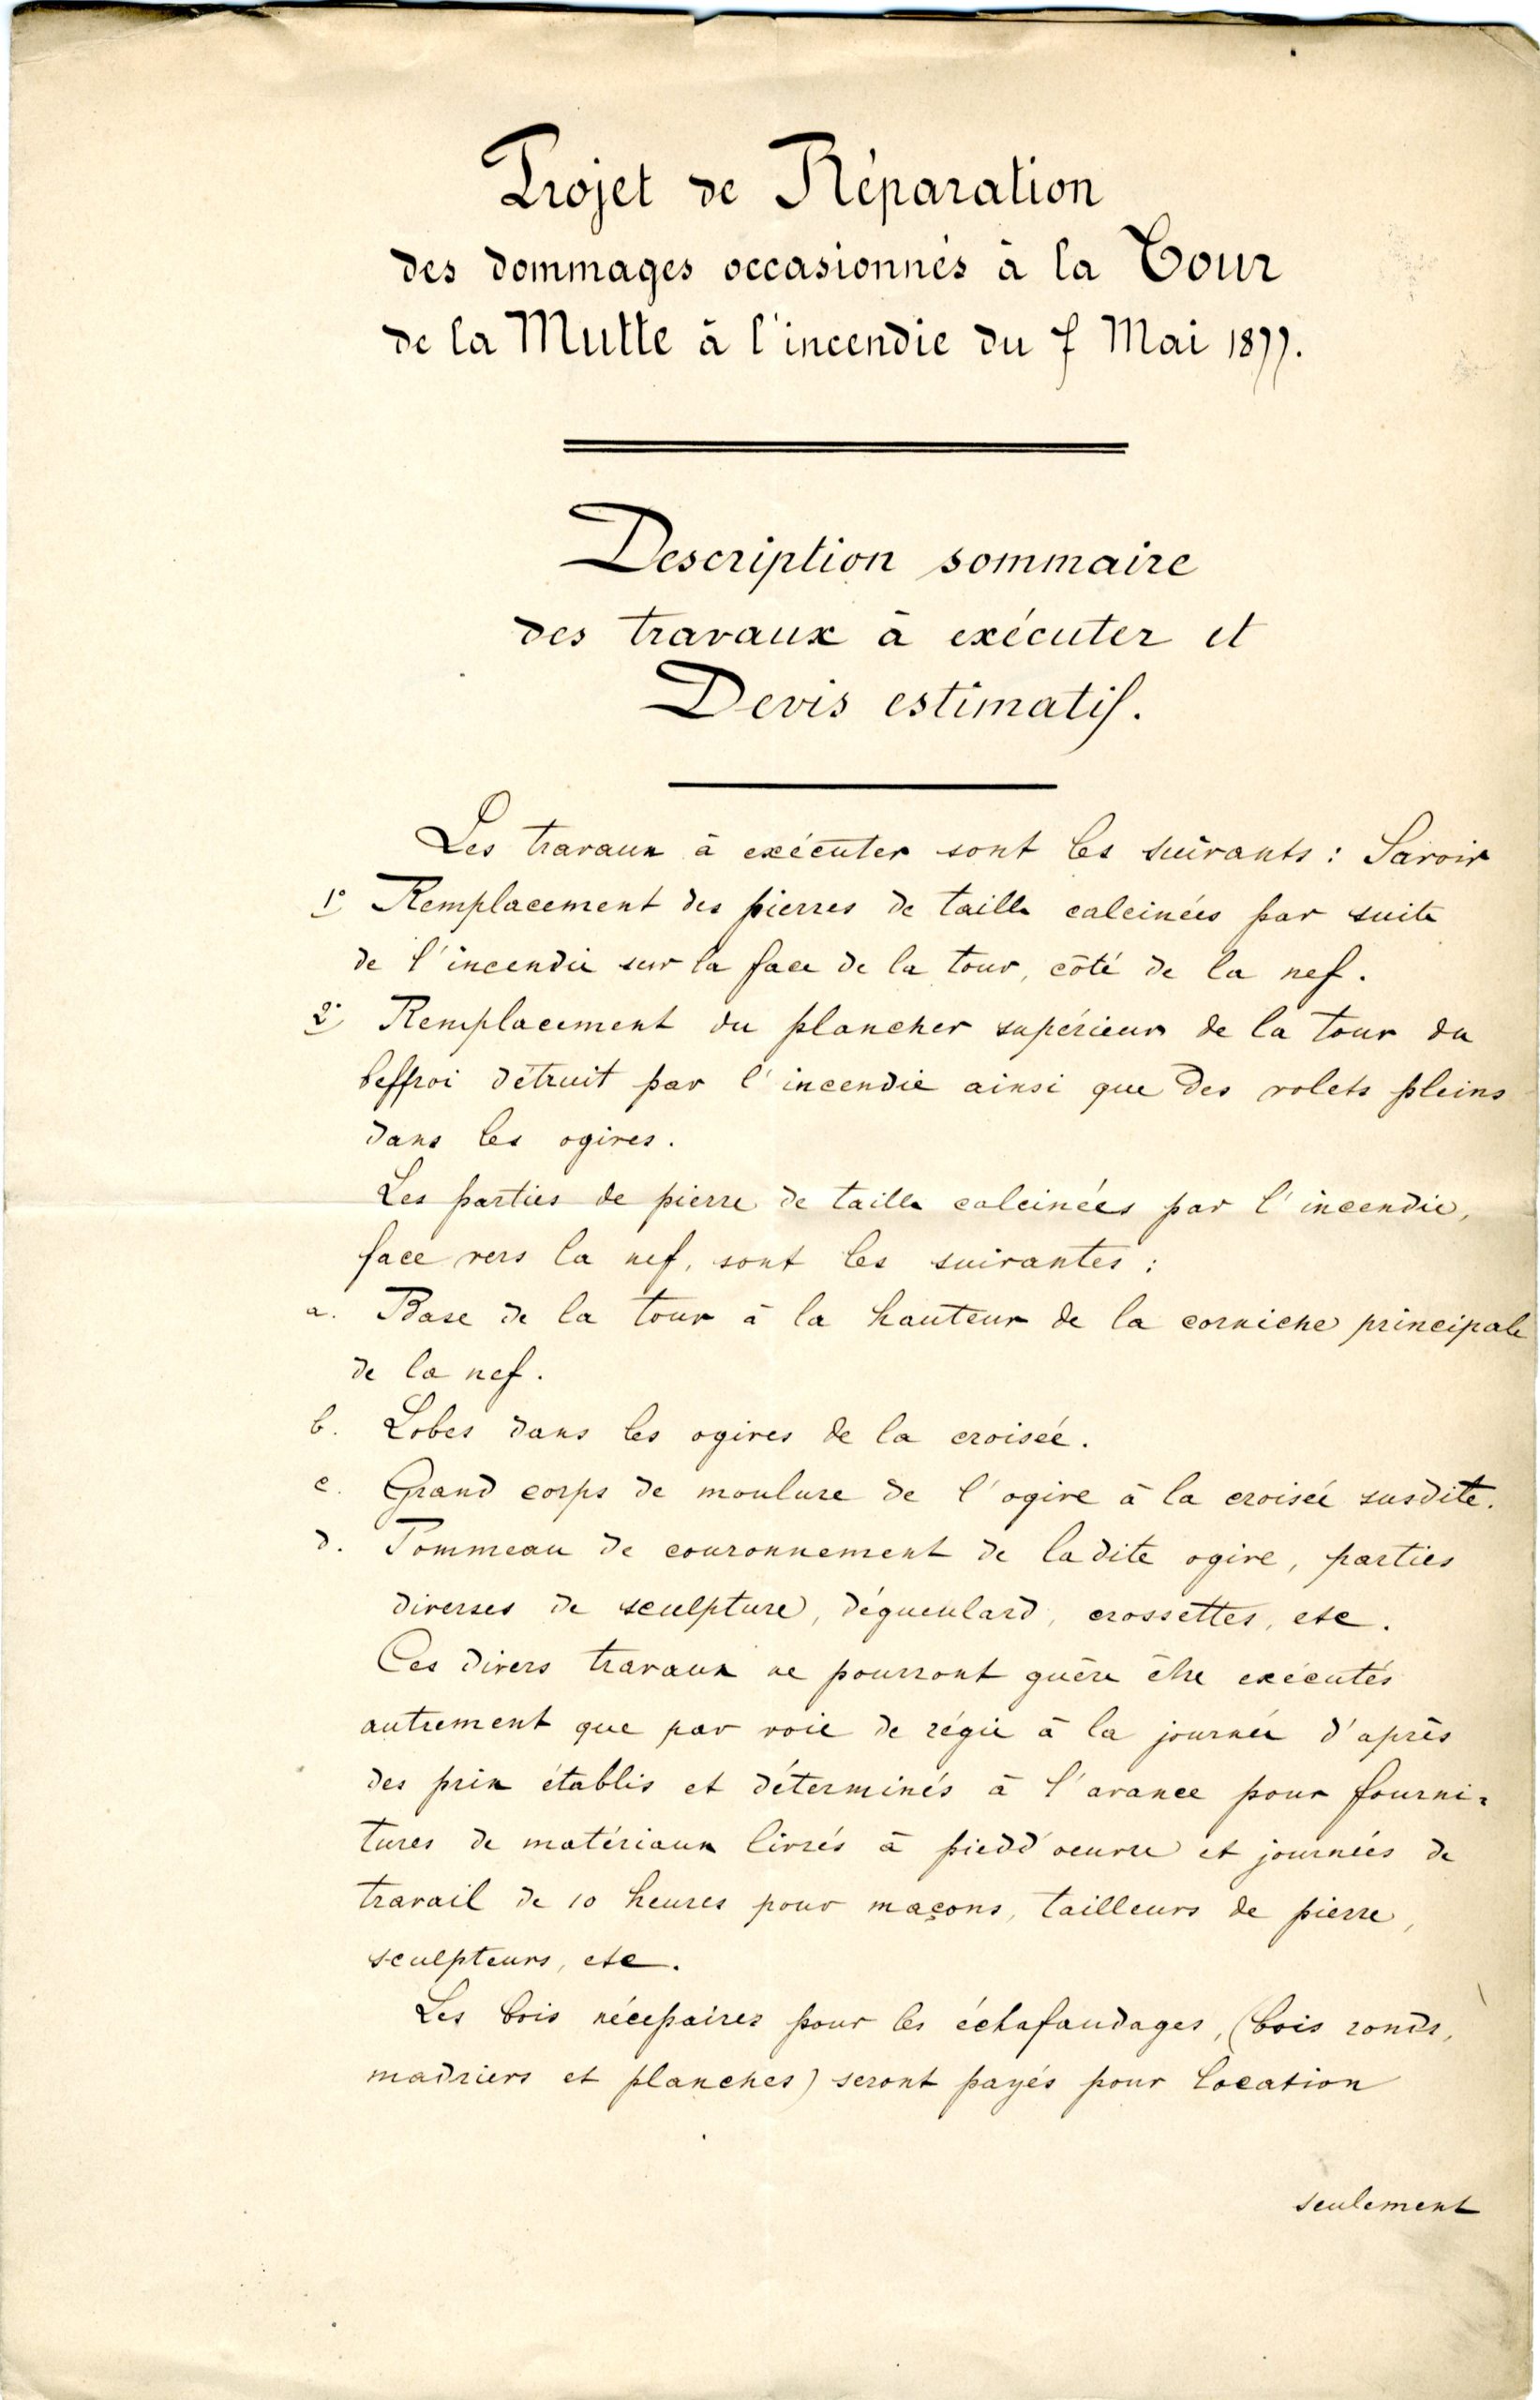 Projet de Réparation
des dommages occasionnés à la Tour
de la Mutte à l'incendie du 7 Mai 1877.
Description sommaire
des travaux à exécuter et
Devis estimatif.
Les travaux à exécuter sont les suivants : Savoir
1° Remplacement des pierres de taille calcinées par suite
de l'incendie sur la face de la tour, côté de la nef.
2° Remplacement du plancher supérieur de la tour du
beffroi détruit par l'incendie ainsi que des volets pleins
dans les ogives.
Les parties de pierre de taille calcinées par l'incendie,
face vers la nef, sont les suivantes :
a. Base de la tour à la hauteur de la corniche principale
de la nef.
b. Lobes dans les ogives de la croisée.
c. Grand corps de moulure de l'ogive à la croisée susdite.
d. Pommeau de couronnement de ladite ogive, parties
diverses de sculpture, dégueulard, crossettes, etc.
Ces divers travaux ne pourront guère être exécutés
autrement que par voie de régie à la journée d'après
des prix établis et déterminés à l'avance pour fourni-
tures de matériaux livrés à pied d'oeuvre et journées de
travail de 10 heures pour maçons, tailleurs de pierre,
sculpteurs, etc.
Les bois nécessaires pour les échafaudages, (bois ronds,
madriers et planches) seront payés pour location
seulement